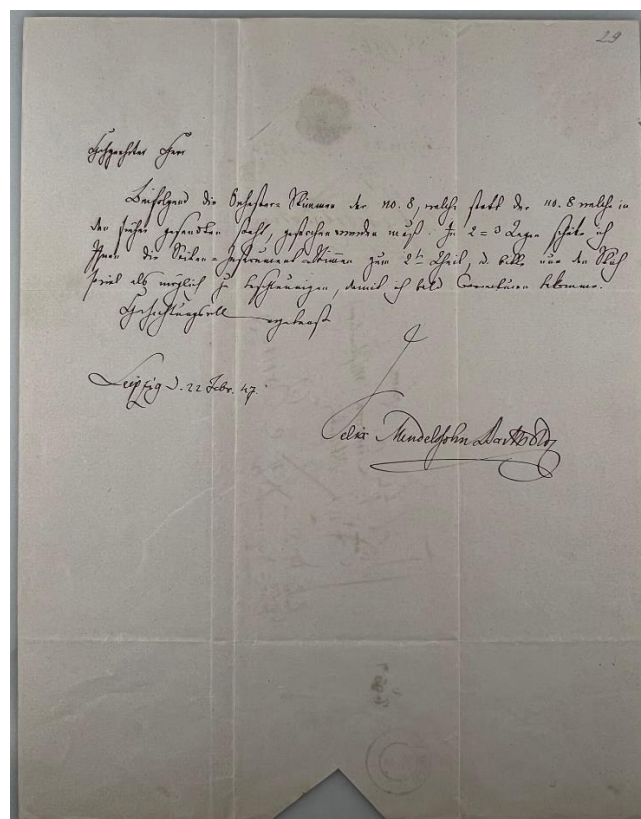 29
Hochgeehrter Herr
Beifolgend die Orchester-Stimmen der no. 8, welche statt der no. 8 welche in
den früher gesandten steht, gestochen werden muß. In 2 = 3 Tagen schicke ich
Ihnen die Saiten-Instrument Stimmen zum 2t Theil, u. bitte nur den Stich
soviel als möglich zu beschleunigen, damit ich bald Correcturen bekomme.
Hochachtungsvoll ergebenst
Leipzig d. 22 Febr. 47.
Felix Mendelssohn Bartholdy